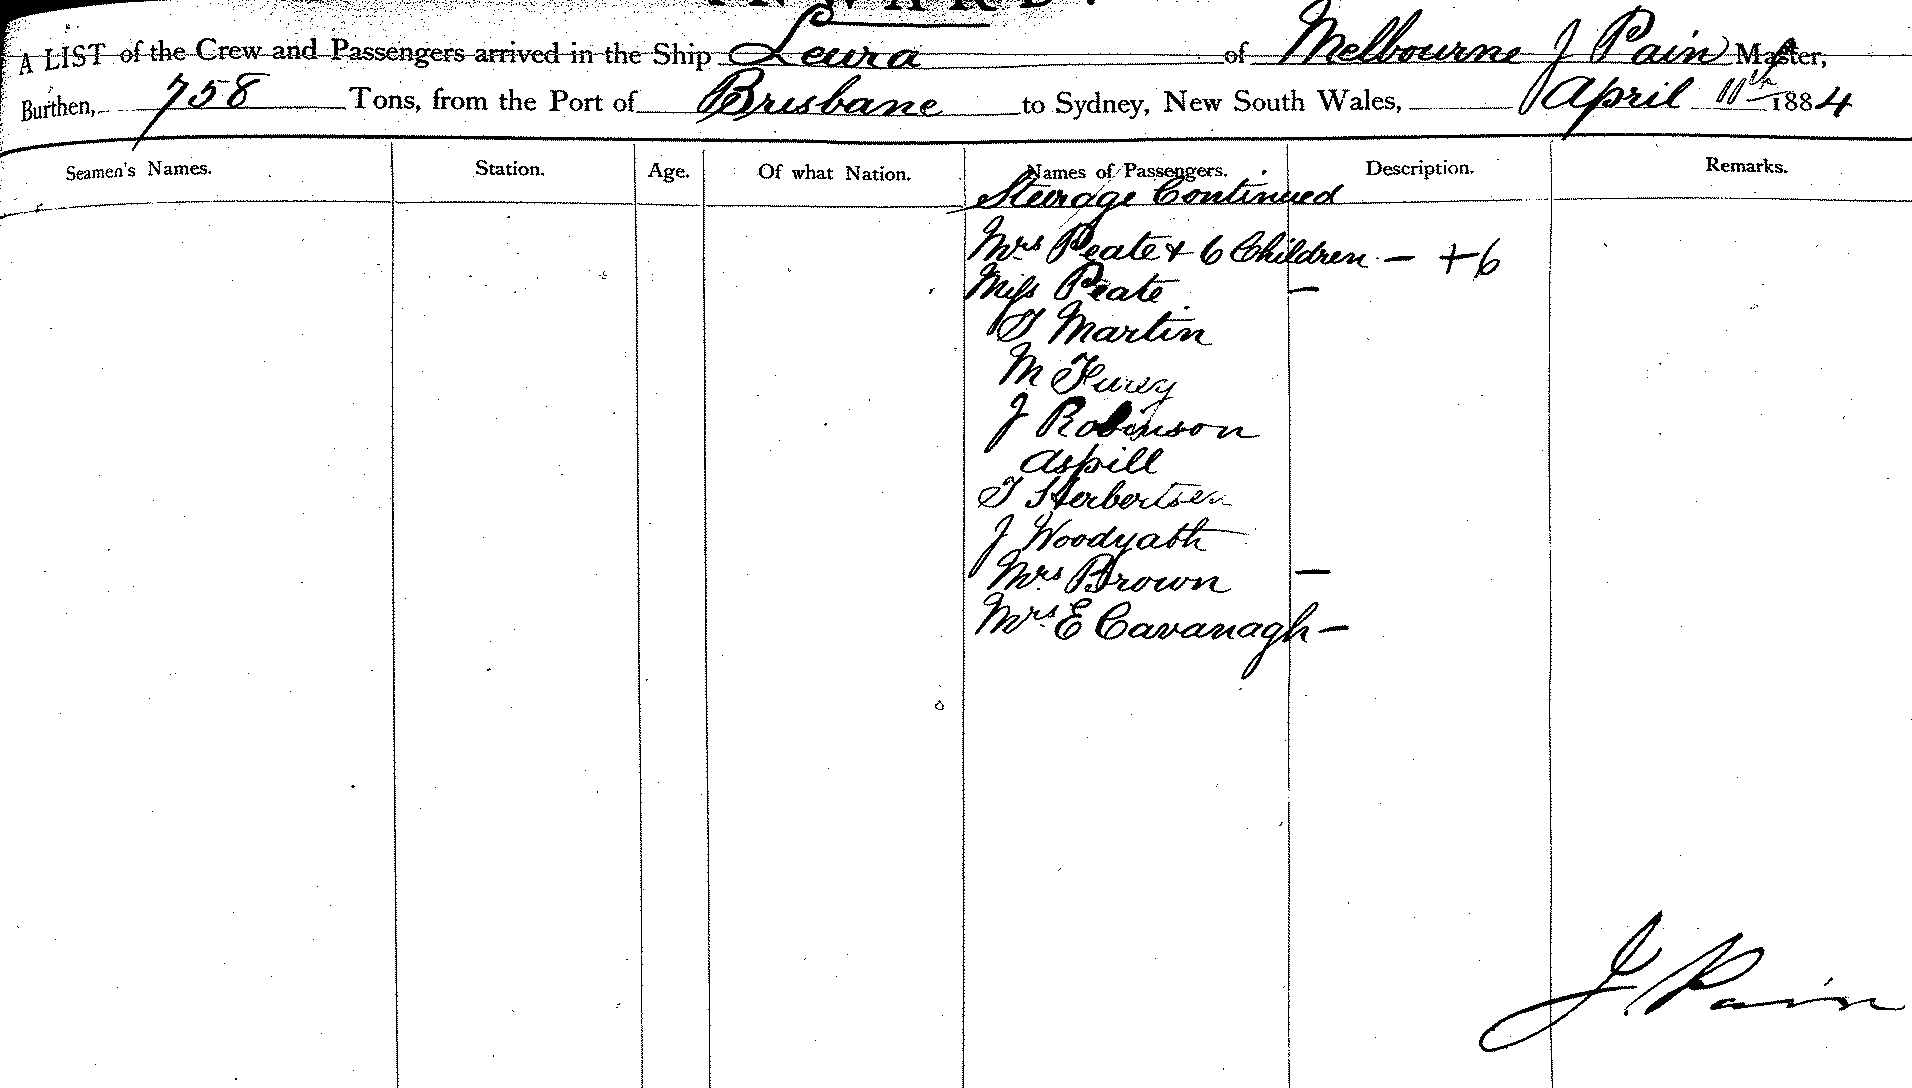 INWARD.
A LIST of the Crew and Passengers arrived in the Ship Leura of Melbourne J Pain Master,
Burthen, 758 Tons, from the Port of Brisbane to Sydney, New South Wales, April 11th 1884
Seamen's Names. Station. Age. Of what Nation. Names of Passengers. Description. Remarks.
Steerage Continued
Mrs Peate & 6 Children — +6
Miss Peate —
T Martin
M Furey
J Robinson
Aspill
T Herbertsen
J Woodyatt
Mrs Brown —
Mrs E Cavanagh —
J. Pain